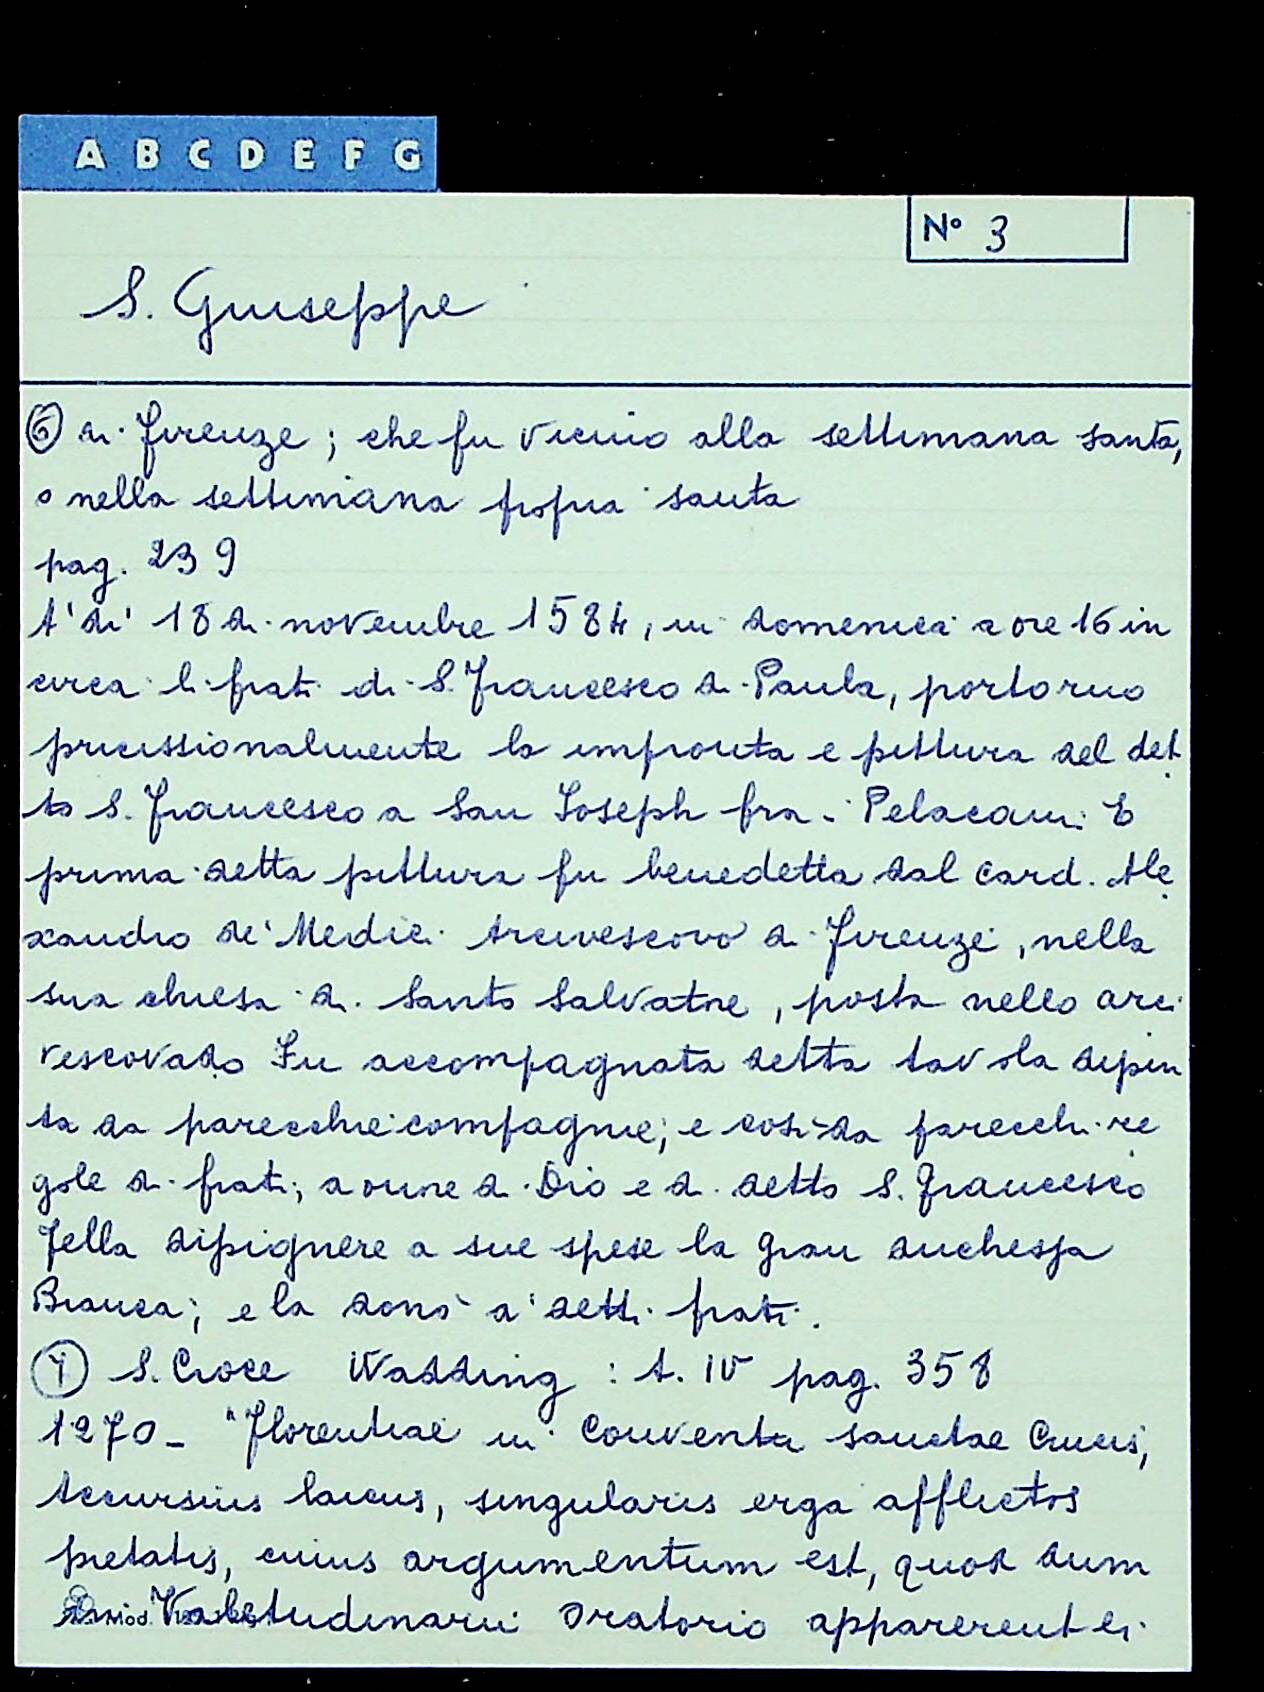 A B C D E F G
N° 3
S. Giuseppe
⑥ di Firenze; che fu vicino alla settimana santa,
o nella settimana propia santa
pag. 239
A' di' 18 di novembre 1584, in domenica a ore 16 in
circa li frati di S. Francesco di Paula, portorno
processionalmente la impronta e pittura del det
to S. Francesco a San Joseph fra i Pelacani. E
prima detta pittura fu benedetta dal Card. Ale
xandro de' Medici Arcivescovo di Firenze, nella
sua chiesa di Santo Salvatore, posta nello arci
vescovado Fu accompagnata detta tavola dipin
ta da parecchie compagnie; e così da parecchi re
gole di frati; a onore di Dio e di detto S. Francesco
Fella dipignere a sue spese la Gran duchessa
Bianca; e la donò a' detti frati.
⑦ S. Croce Wadding : A. IV pag. 358
1270 - "Florentiae in Conventu sanctae Crucis,
Accursius laicus, singularis erga afflictos
pietatis, cuius argumentum est, quod dum
in Valetudinarii oratorio apparerent ei